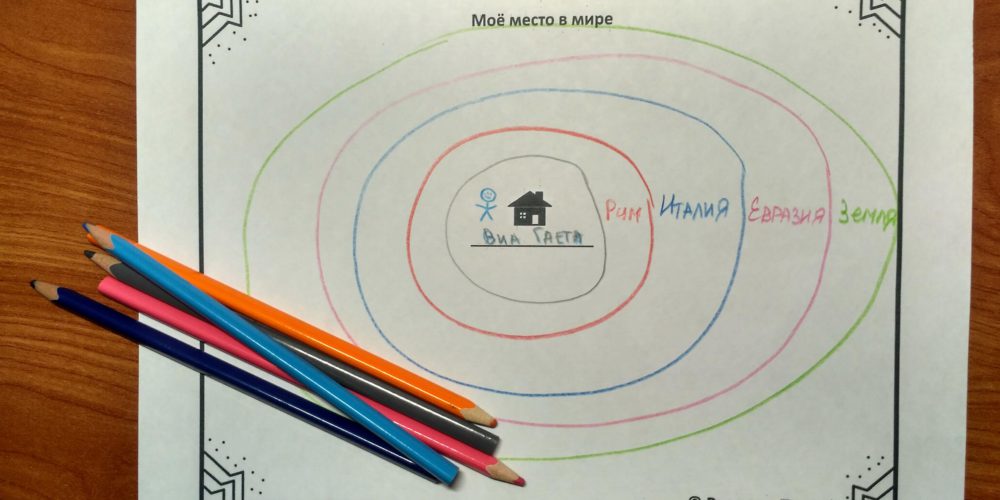 Моё место в мире
Виа Гаета
Рим
Италия
Евразия
Земля